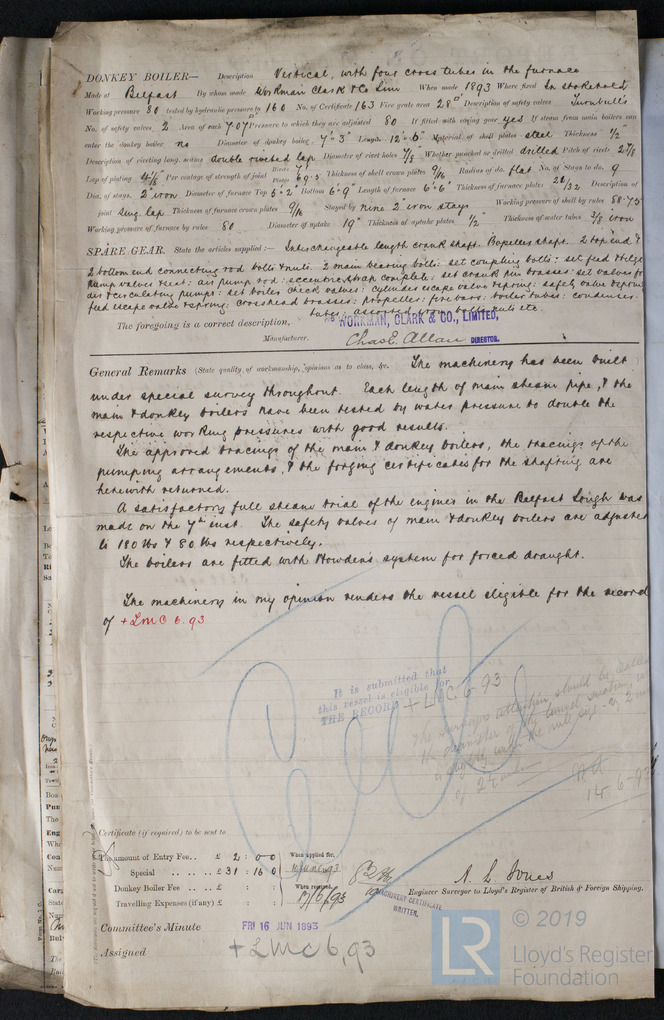 DONKEY BOILER— Description Vertical, with four cross tubes in the furnace
Made at Belfast By whom made Workman Clark & Co Lim When made 1893 Where fixed In stokehold
Working pressure 80 tested by hydraulic pressure to 160 No. of Certificate 163 Fire grate area 28□' Description of safety valves Turnbull's
No. of safety valves 2 Area of each 7.07□" Pressure to which they are adjusted 80 If fitted with easing gear yes If steam from main boilers can
enter the donkey boiler no Diameter of donkey boiler 7'-3" Length 12'-6" Material of shell plates steel Thickness 1/2"
Description of riveting long. seams double riveted lap Diameter of rivet holes 7/8" Whether punched or drilled drilled Pitch of rivets 2 7/8
Lap of plating 4 1/8" Per centage of strength of joint Rivets 71 Plates 69.5 Thickness of shell crown plates 9/16 Radius of do. flat No. of Stays to do. 9
Dia. of stays. 2" iron Diameter of furnace Top 5'-2" Bottom 6'-9" Length of furnace 6'-6" Thickness of furnace plates 21/32 Description of
joint Sing. lap Thickness of furnace crown plates 9/16 Stayed by nine 2" iron stays Working pressure of shell by rules 88.75
Working pressure of furnace by rules 80 Diameter of uptake 19" Thickness of uptake plates 1/2" Thickness of water tubes 3/8 iron
SPARE GEAR. State the articles supplied:— Interchangeable length crank shaft. Propeller shaft. 2 top end &
2 bottom end connecting rod bolts & nuts: 2 main bearing bolts: set coupling bolts: set feed & bilge
pump valves & seat: air pump rod: eccentric strap complete: set crank pin brasses: set valves for
air & circulating pumps: set boiler check valves: Cylinder escape valve spring: safety valve spring
feed escape valve spring: Crosshead brasses: propeller: fire bars: boiler tubes: condenser
tubes: assorted iron bolts nuts etc.
The foregoing is a correct description,
WORKMAN, CLARK & CO., LIMITED,
Manufacturer. Chas E. Allan DIRECTOR.
General Remarks (State quality of workmanship, opinions as to class, &c. The machinery has been built
under special survey throughout. Each length of main steam pipe, & the
main & donkey boilers have been tested by water pressure to double the
respective working pressures with good results.
The approved tracings of the main & donkey boilers, the tracings of the
pumping arrangements, & the forging certificates for the shafting are
herewith returned.
A satisfactory full steam trial of the engines in the Belfast Lough was
made on the 7th inst. The safety valves of main & donkey boilers are adjusted
to 180 lbs & 80 lbs respectively.
The boilers are fitted with Howden's system for forced draught.
The machinery in my opinion renders the vessel eligible for the record
of +LMC 6.93
It is submitted that
this vessel is eligible for
THE RECORD +LMC 6.93
The surveyor's attention should be called
the diameter of the
14.6.93
Certificate (if required) to be sent to
The amount of Entry Fee.. £ 2 : 0 : 0
When applied for,
Special .... £ 31 : 16 : 0
Donkey Boiler Fee .. £ : :
When received,
Travelling Expenses (if any) £ : :
17/6/93
A. L. Jones
Engineer Surveyor to Lloyd's Register of British & Foreign Shipping.
MACHINERY CERTIFICATE
WRITTEN.
Committee's Minute FRI 16 JUN 1893
Assigned +LMC 6,93
© 2019
LR
Lloyd's Register
Foundation